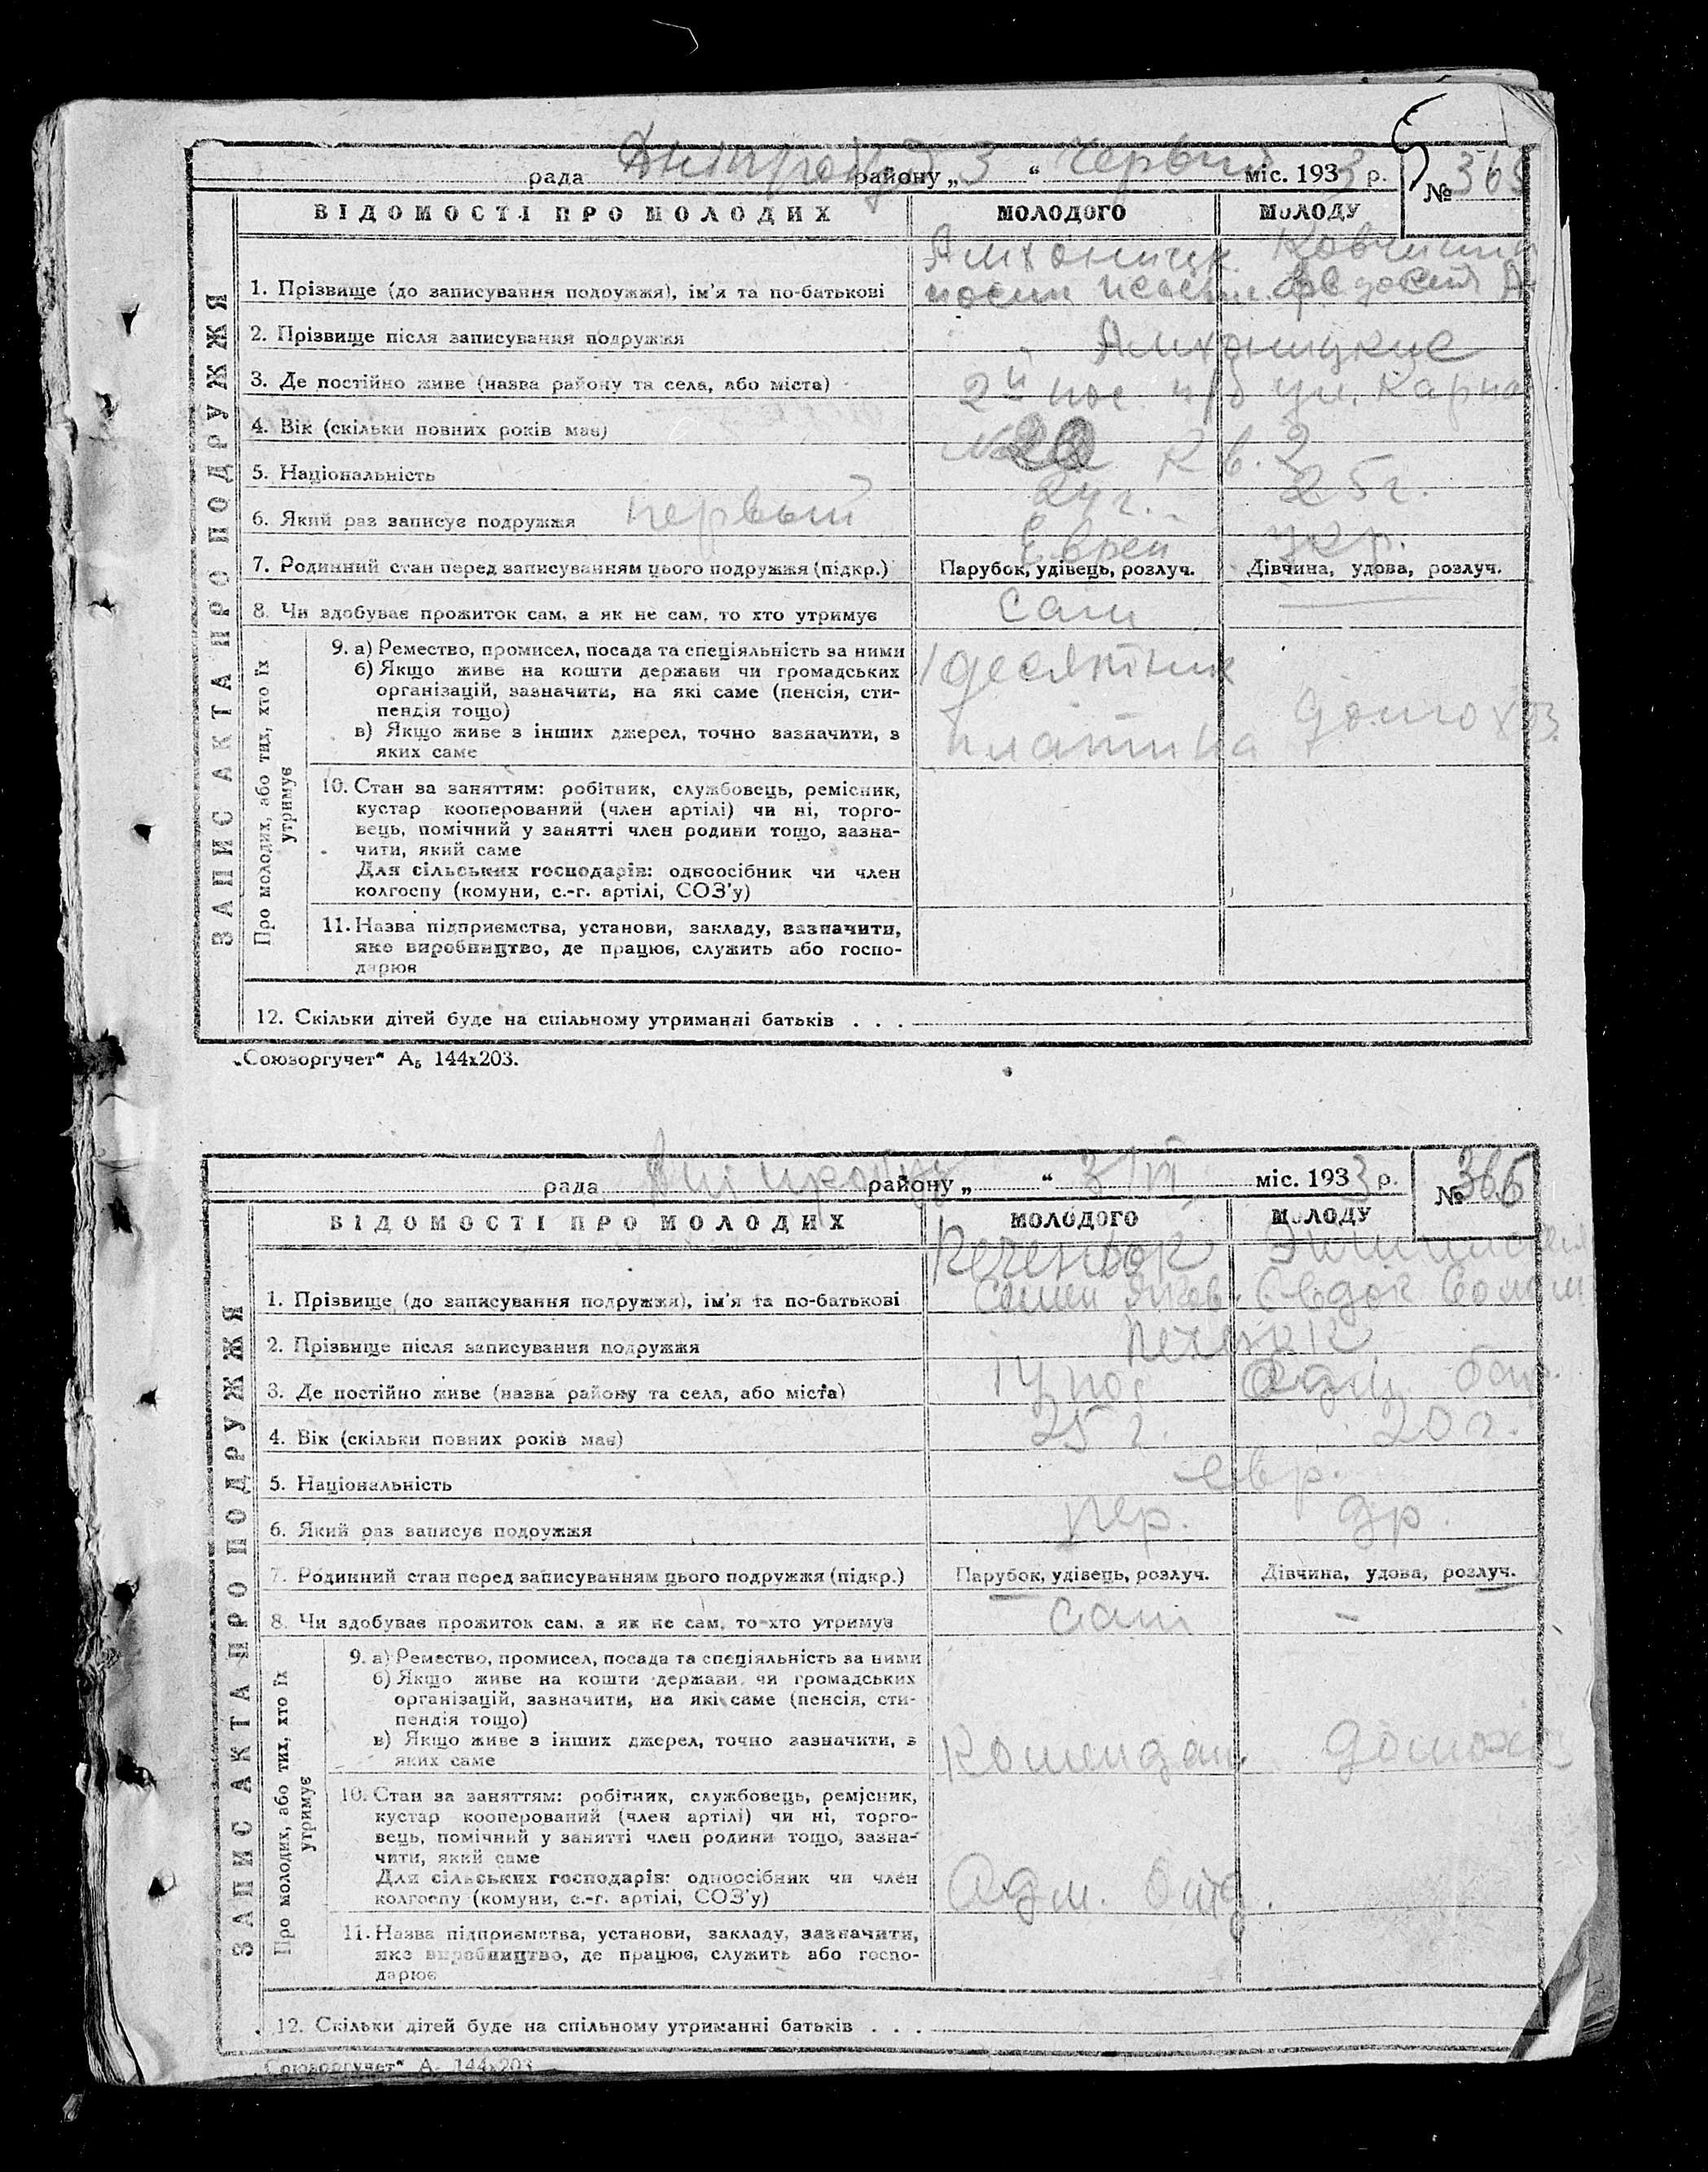 рада Дніпробуд району „ 3 “ Червня міс. 1933 р. № 365
ВІДОМОСТІ ПРО МОЛОДИХ МОЛОДОГО МОЛОДУ
ЗАПИС АКТА ПРО ПОДРУЖЖЯ
1. Прізвище (до записування подружжя), ім'я та по-батькові
2. Прізвище після записування подружжя
3. Де постійно живе (назва району та села, або міста) 2й пос.
4. Вік (скільки повних років має) кв. 2
5. Національність 24 г. 25 г.
6. Який раз записує подружжя первый Еврей укр.
7. Родинний стан перед записуванням цього подружжя (підкр.) Парубок, удівець, розлуч. Дівчина, удова, розлуч.
8. Чи здобуває прожиток сам, а як не сам, то хто утримує сам
Про молодих, або тих, хто їх утримує
9. а) Ремество, промисел, посада та спеціяльність за ними
б) Якщо живе на кошти держави чи громадських
організацій, зазначити, на які саме (пенсія, сти-
пендія тощо)
в) Якщо живе з інших джерел, точно зазначити, з
яких саме
десятник
плотина домохоз.
10. Стан за заняттям: робітник, службовець, ремісник,
кустар кооперований (член артілі) чи ні, торго-
вець, помічний у занятті член родини тощо, зазна-
чити, який саме
Для сільських господарів: одноосібник чи член
колгоспу (комуни, с.-г. артілі, СОЗ'у)
11. Назва підприємства, установи, закладу, зазначити,
яке виробництво, де працює, служить або госпо-
дарює
12. Скільки дітей буде на спільному утриманні батьків . . .
„Союзоргучет“ А₅ 144х203.
рада Дніпробуд району „ “ 3/VI міс. 1933 р. № 366
ВІДОМОСТІ ПРО МОЛОДИХ МОЛОДОГО МОЛОДУ
ЗАПИС АКТА ПРО ПОДРУЖЖЯ
1. Прізвище (до записування подружжя), ім'я та по-батькові Семен Яков.
2. Прізвище після записування подружжя
3. Де постійно живе (назва району та села, або міста) пос
4. Вік (скільки повних років має) 25 г. 20 г.
5. Національність евр.
6. Який раз записує подружжя пер. др.
7. Родинний стан перед записуванням цього подружжя (підкр.) Парубок, удівець, розлуч. Дівчина, удова, розлуч.
8. Чи здобуває прожиток сам, а як не сам, то хто утримує сам -
Про молодих, або тих, хто їх утримує
9. а) Ремество, промисел, посада та спеціяльність за ними
б) Якщо живе на кошти держави чи громадських
організацій, зазначити, на які саме (пенсія, сти-
пендія тощо)
в) Якщо живе з інших джерел, точно зазначити, з
яких саме
Комендан. домохоз
10. Стан за заняттям: робітник, службовець, ремісник,
кустар кооперований (член артілі) чи ні, торго-
вець, помічний у занятті член родини тощо, зазна-
чити, який саме
Для сільських господарів: одноосібник чи член
колгоспу (комуни, с.-г. артілі, СОЗ'у)
Адм. отд.
11. Назва підприємства, установи, закладу, зазначити,
яке виробництво, де працює, служить або госпо-
дарює
12. Скільки дітей буде на спільному утриманні батьків . . .
„Союзоргучет“ А₅ 144х203